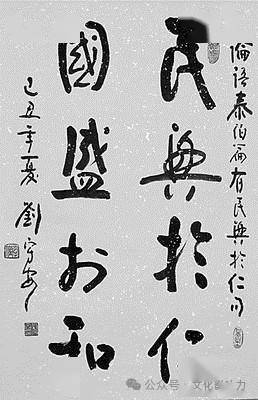 論語泰伯篇有民興於仁句
民興於仁
國盛於和
己丑年夏 劉守安
公众号 · 文化力